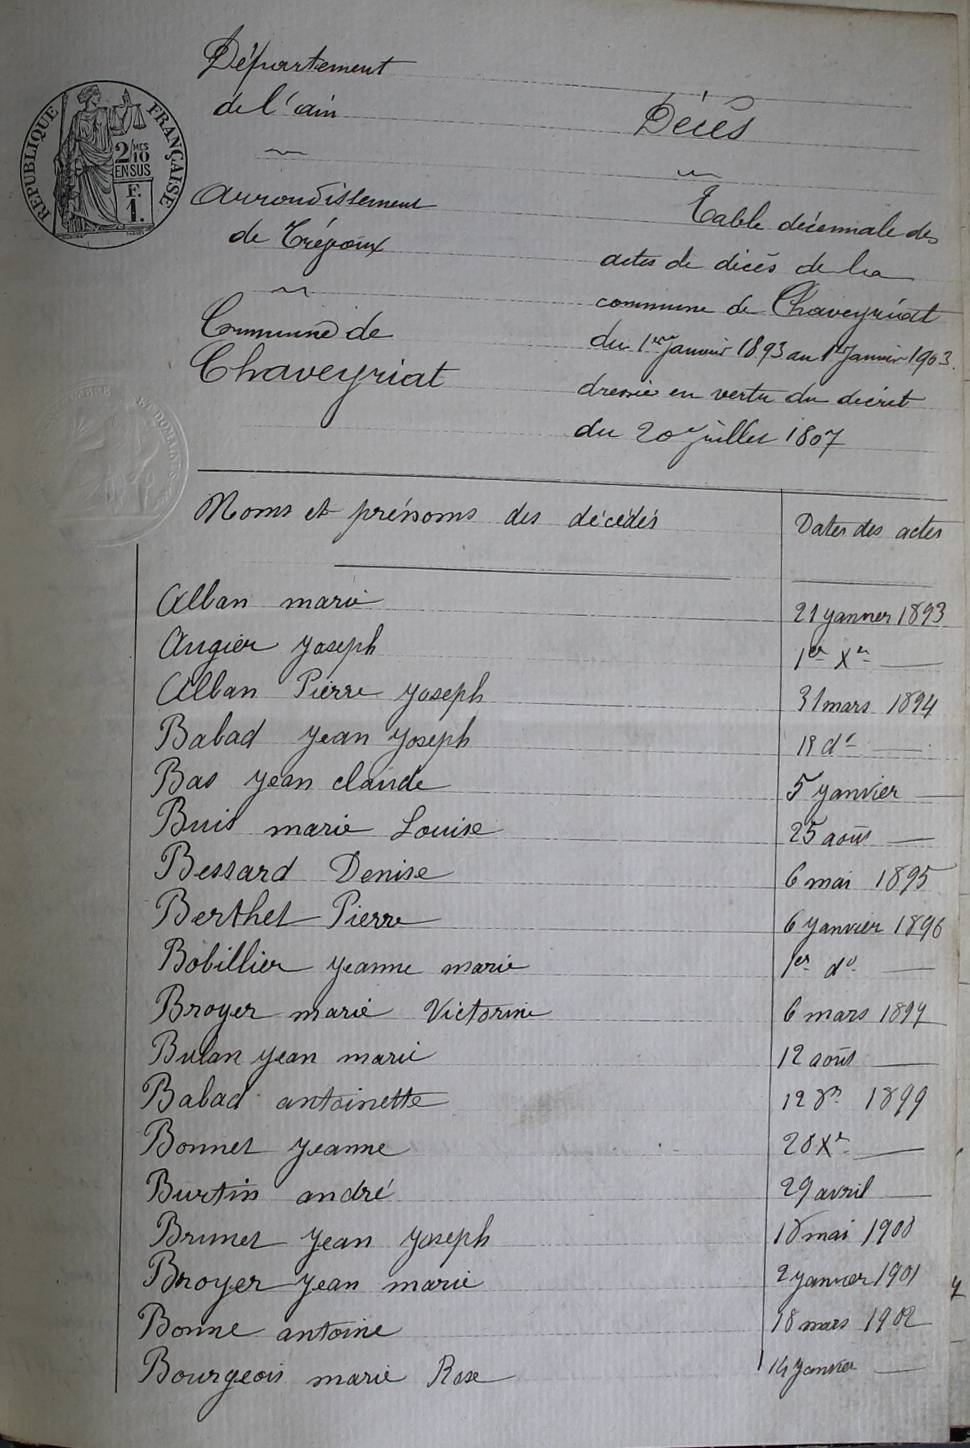 Département
de l'ain
RÉPUBLIQUE FRANÇAISE
2/10 MES
EN SUS
F.
1.
arrondissement
de Trévoux
Commune de
Chaveyriat
Décès
Table décennale des
actes de décès de la
commune de Chaveyriat
du 1er Janvier 1893 au 1er Janvier 1903.
dressée en vertu du décret
du 20 juillet 1807
Noms et prénoms des décédés Dates des actes
Alban marie 21 janvier 1893
Augier Joseph 1er Xre —
Alban Pierre Joseph 31 mars 1894
Babad Jean Joseph 18 do —
Bas Jean claude 5 janvier —
Buis marie Louise 25 août —
Bessard Denise 6 mai 1895
Berthet Pierre 6 janvier 1896
Bobillier Jeanne marie 1er do —
Broyer marie Victorine 6 mars 1897
Bulan Jean marie 12 août —
Babad antoinette 12 8re 1899
Bonnet Jeanne 28 Xre —
Burtin andré 29 avril —
Brunet Jean Joseph 18 mai 1900
Broyer Jean marie 2 janvier 1901
Bonne antoine 18 mars 1902
Bourgeois marie Rose 14 janvier —